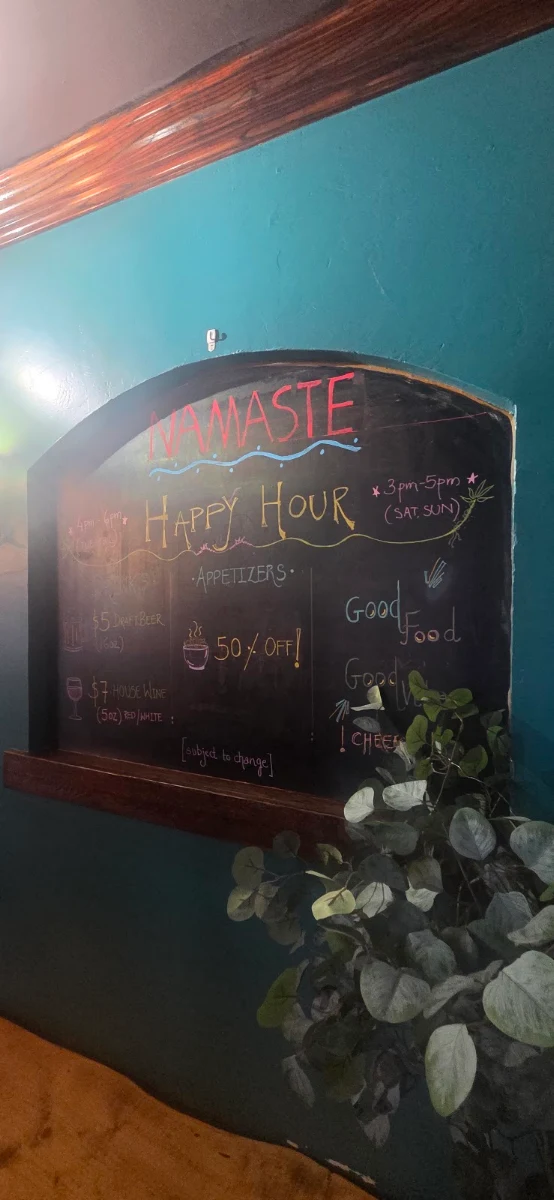 NAMASTE
HAPPY HOUR
4pm-6pm
3pm-5pm
(SAT, SUN)
$5 DRAFT BEER
$7 HOUSE WINE
(5oz) RED/WHITE
·APPETIZERS·
50% OFF!
[subject to change]
Good
Food
Good
! CHEE